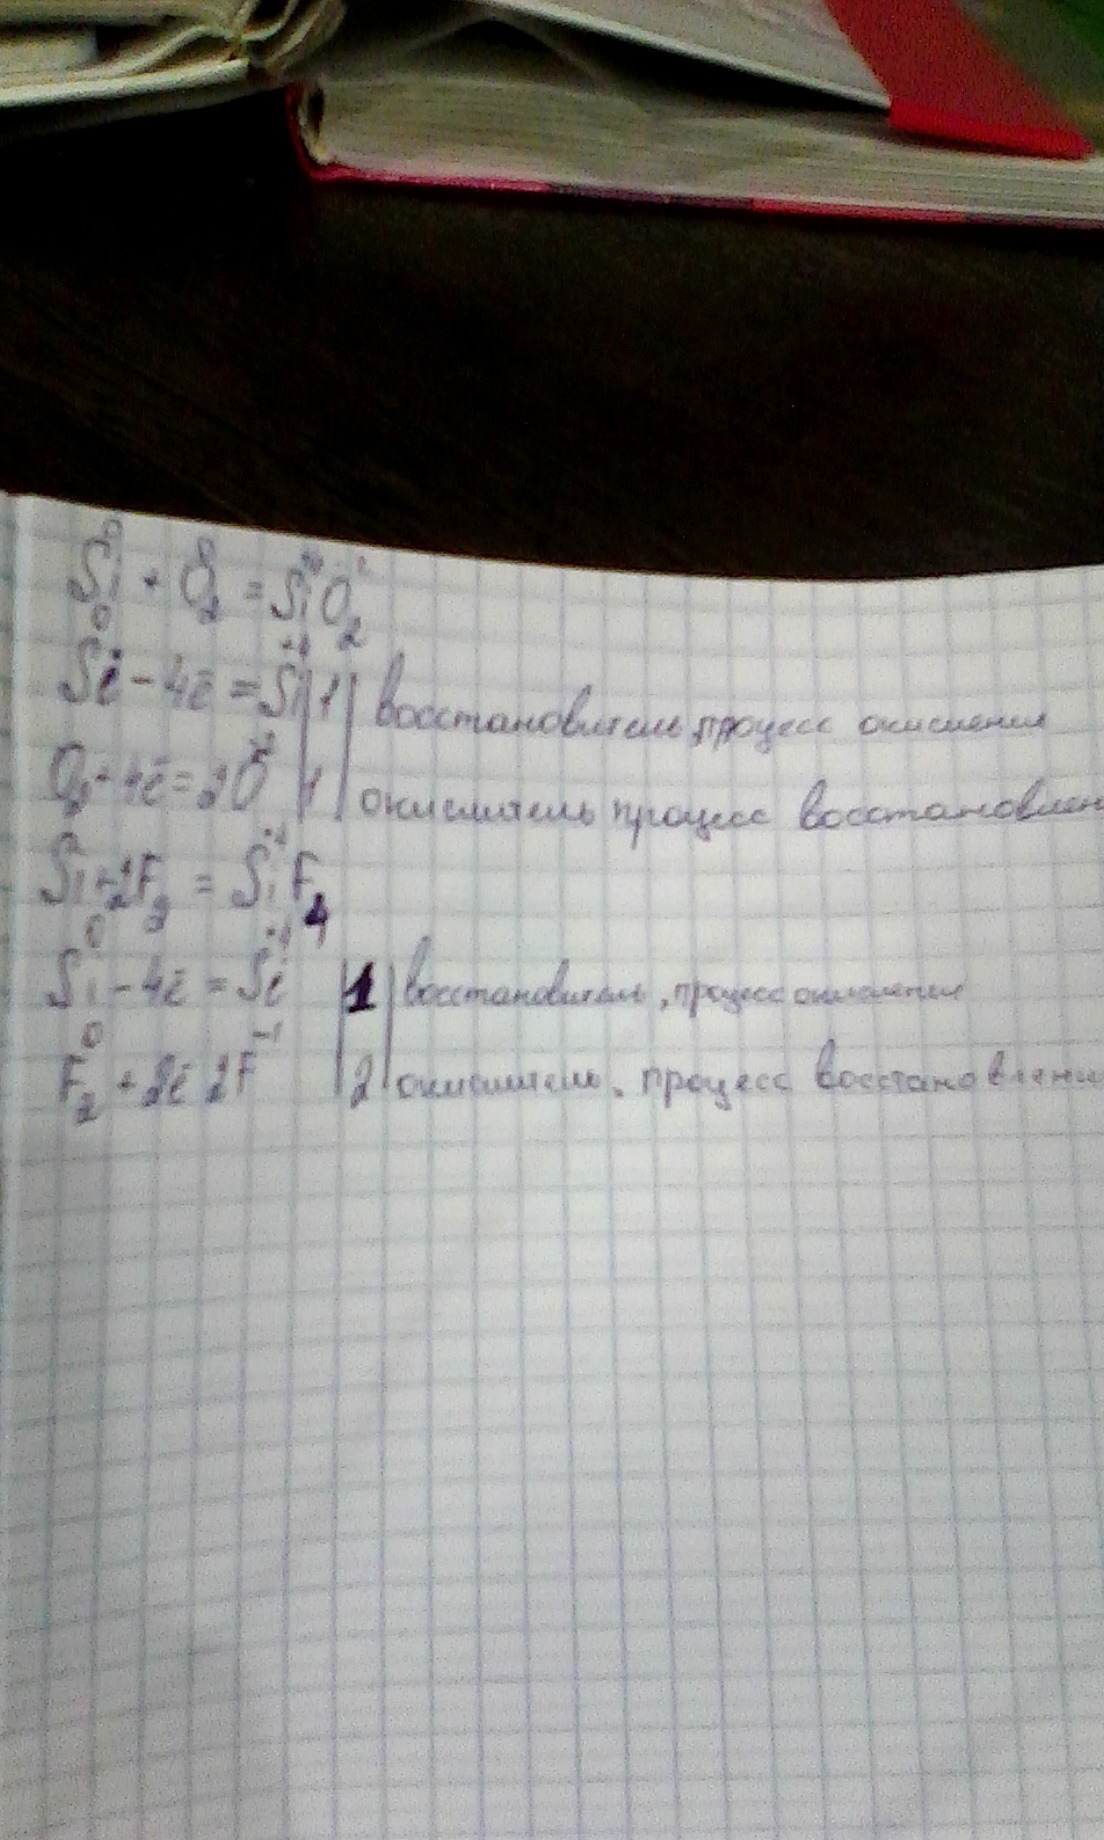 Si⁰ + O₂⁰ = Si⁺⁴O₂⁻²
Si⁰ - 4ē = Si⁺⁴ | 1 | восстановитель, процесс окисления
O₂ + 4ē = 2O⁻² | 1 | окислитель процесс восстановлен
Si + 2F₂ = Si⁺⁴F₄
Si⁰ - 4ē = Si⁺⁴ | 1 | восстановитель, процесс окисления
F₂⁰ + 2ē 2F⁻¹ | 2 | окислитель, процесс восстановлени